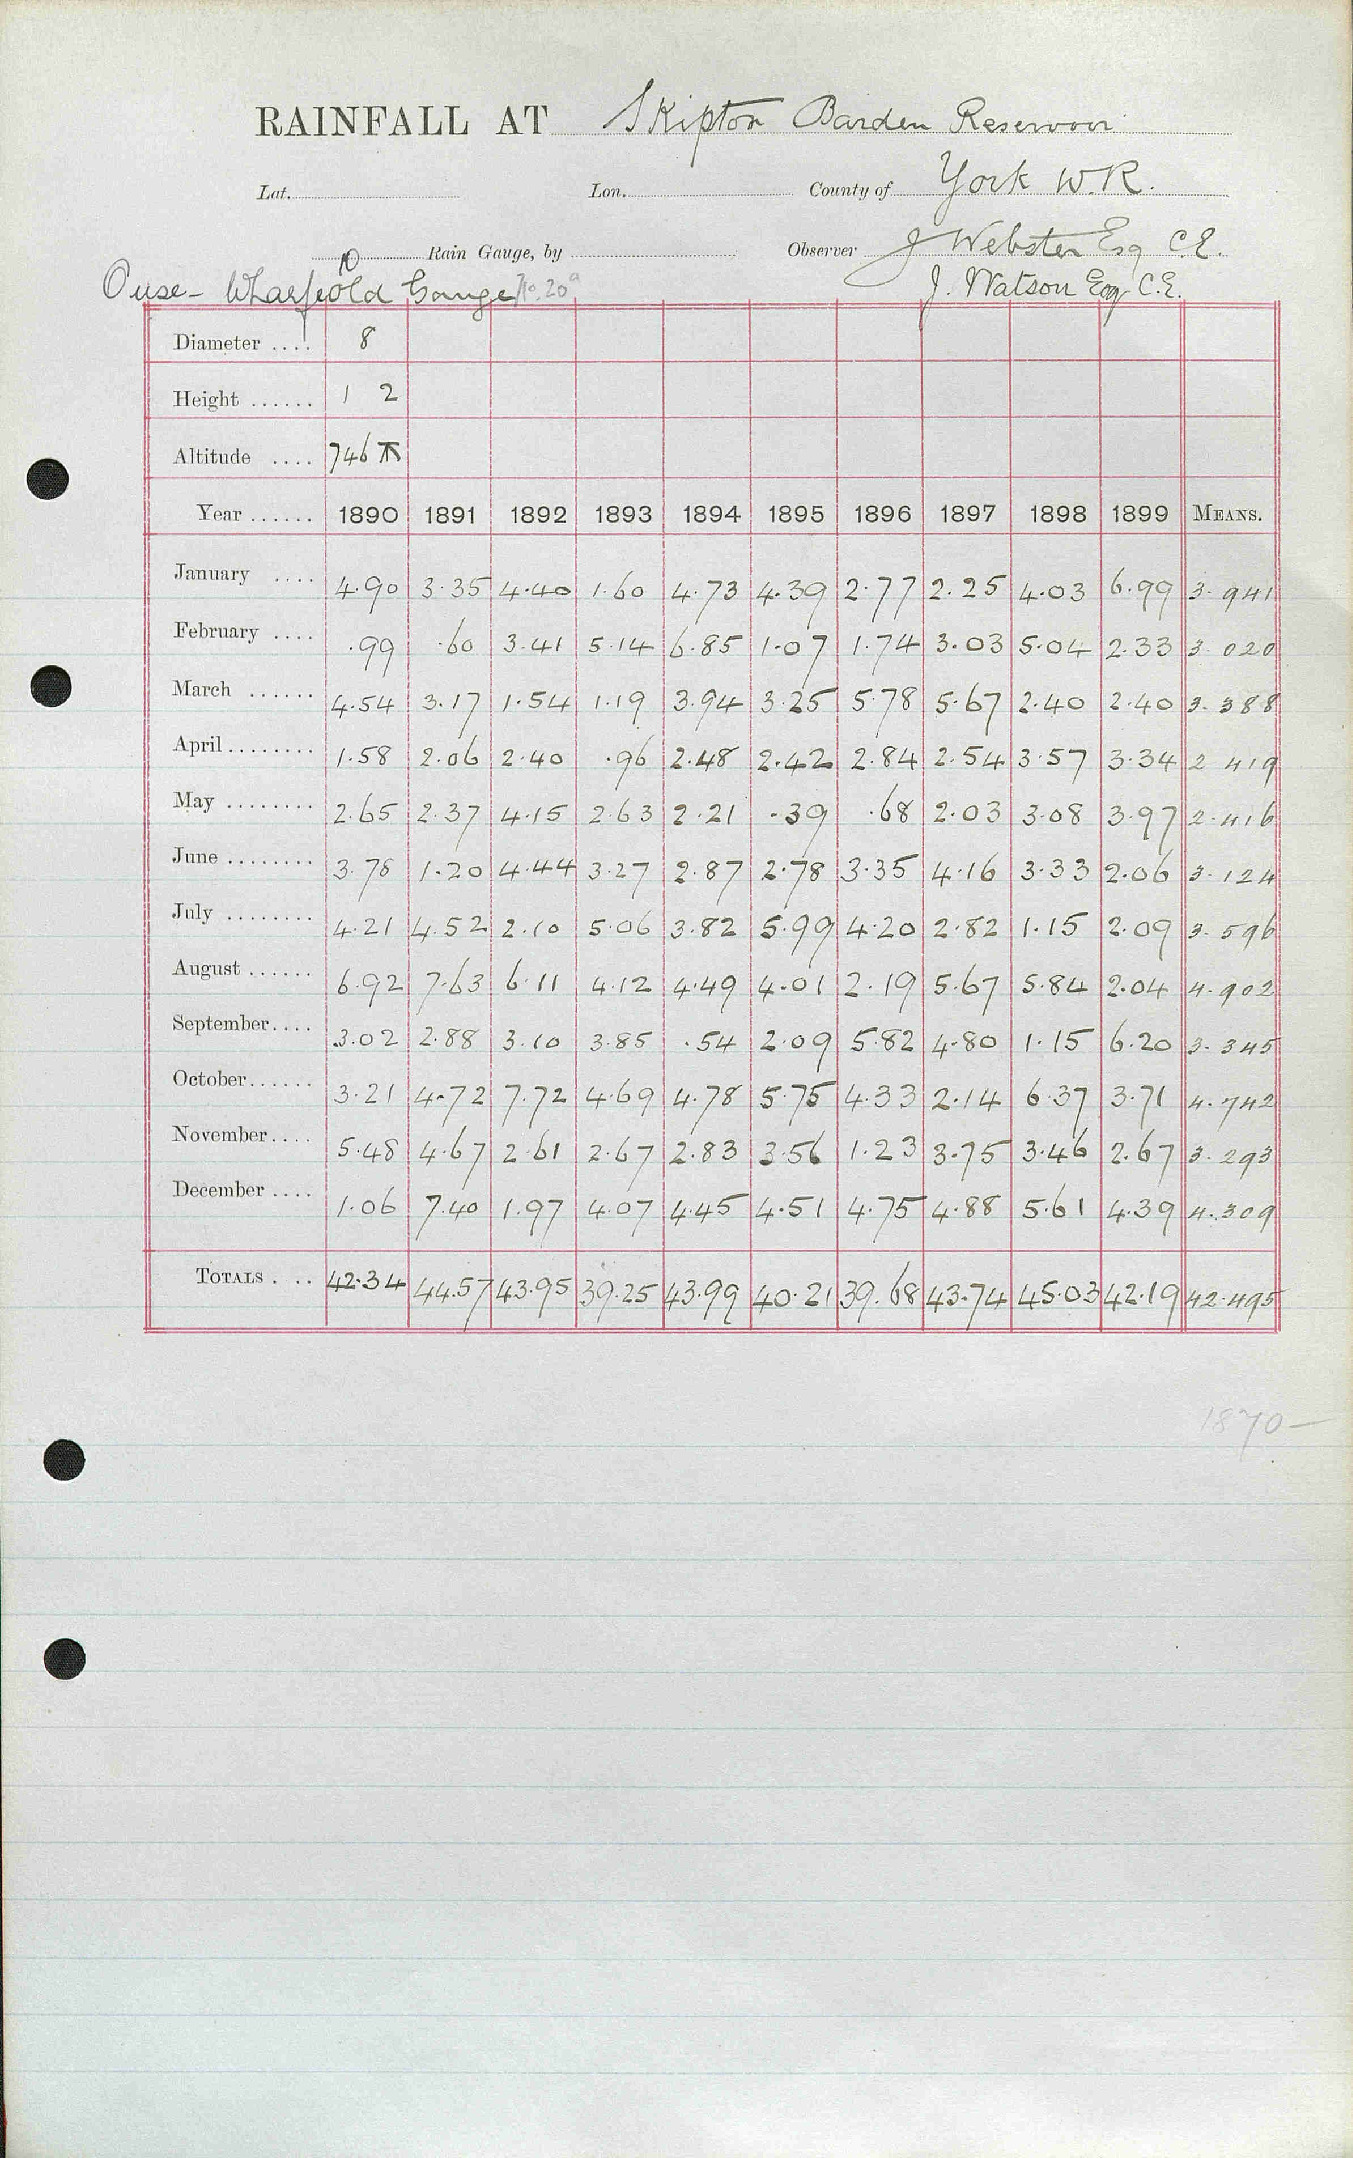 RAINFALL AT Skipton Barden Reservoir
Lat. Lon. County of York W.R.
Rain Gauge, by Observer J Webster Esq C.E.
10
Ouse - Wharfe Old Gauge No. 20a J. Watson Esq C.E.
Diameter .... 8
Height ...... 1 2
Altitude .... 746
Year ...... 1890 1891 1892 1893 1894 1895 1896 1897 1898 1899 MEANS.
January .... 4.90 3.35 4.40 1.60 4.73 4.39 2.77 2.25 4.03 6.99 3.941
February .... .99 .60 3.41 5.14 6.85 1.07 1.74 3.03 5.04 2.33 3.020
March ...... 4.54 3.17 1.54 1.19 3.94 3.25 5.78 5.67 2.40 2.40 3.388
April ........ 1.58 2.06 2.40 .96 2.48 2.42 2.84 2.54 3.57 3.34 2.419
May ........ 2.65 2.37 4.15 2.63 2.21 .39 .68 2.03 3.08 3.97 2.416
June ........ 3.78 1.20 4.44 3.27 2.87 2.78 3.35 4.16 3.33 2.06 3.124
July ........ 4.21 4.52 2.10 5.06 3.82 5.99 4.20 2.82 1.15 2.09 3.596
August ...... 6.92 7.63 6.11 4.12 4.49 4.01 2.19 5.67 5.84 2.04 4.902
September .... 3.02 2.88 3.10 3.85 .54 2.09 5.82 4.80 1.15 6.20 3.345
October ...... 3.21 4.72 7.72 4.69 4.78 5.75 4.33 2.14 6.37 3.71 4.742
November .... 5.48 4.67 2.61 2.67 2.83 3.56 1.23 3.75 3.46 2.67 3.293
December .... 1.06 7.40 1.97 4.07 4.45 4.51 4.75 4.88 5.61 4.39 4.309
TOTALS . .. 42.34 44.57 43.95 39.25 43.99 40.21 39.68 43.74 45.03 42.19 42.495
1870—